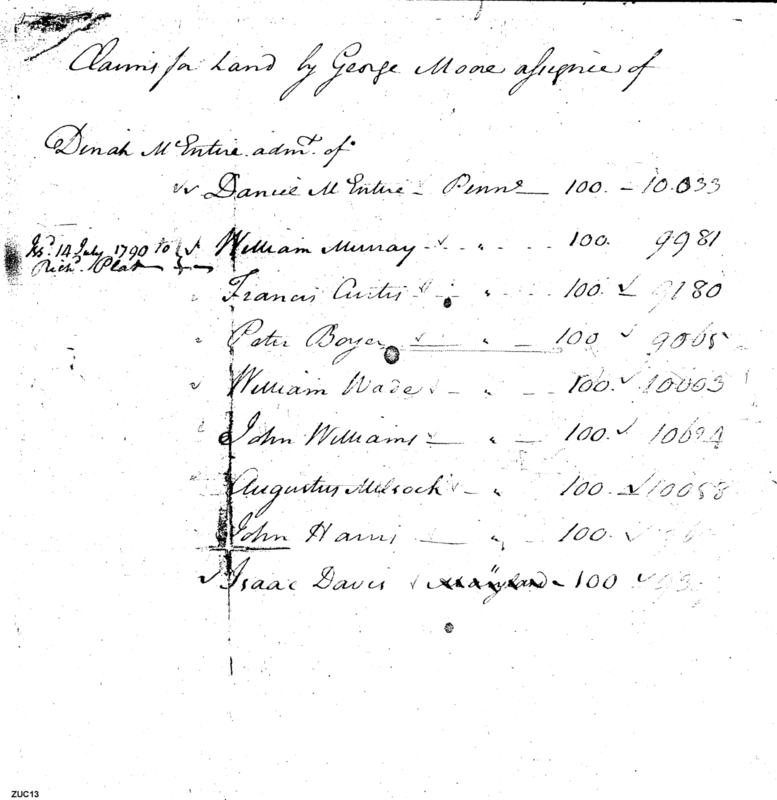 Claims for Land by George Moore assignee of
Dinah McEntire admt. of
Daniel McEntire - Penne - 100. - 10.033
Iss'd. 14 July 1790 to William Murray " 100. 9981
Rich'd. Platt
Francis Curtis " 100. 9180
Peter Boyer " 100 9065
William Wade " 100. 10003
John Williams " 100. 10694
Augustus Milrock " 100. 10058
John Harris " 100.
Isaac Davis Maryland - 100
ZUC13